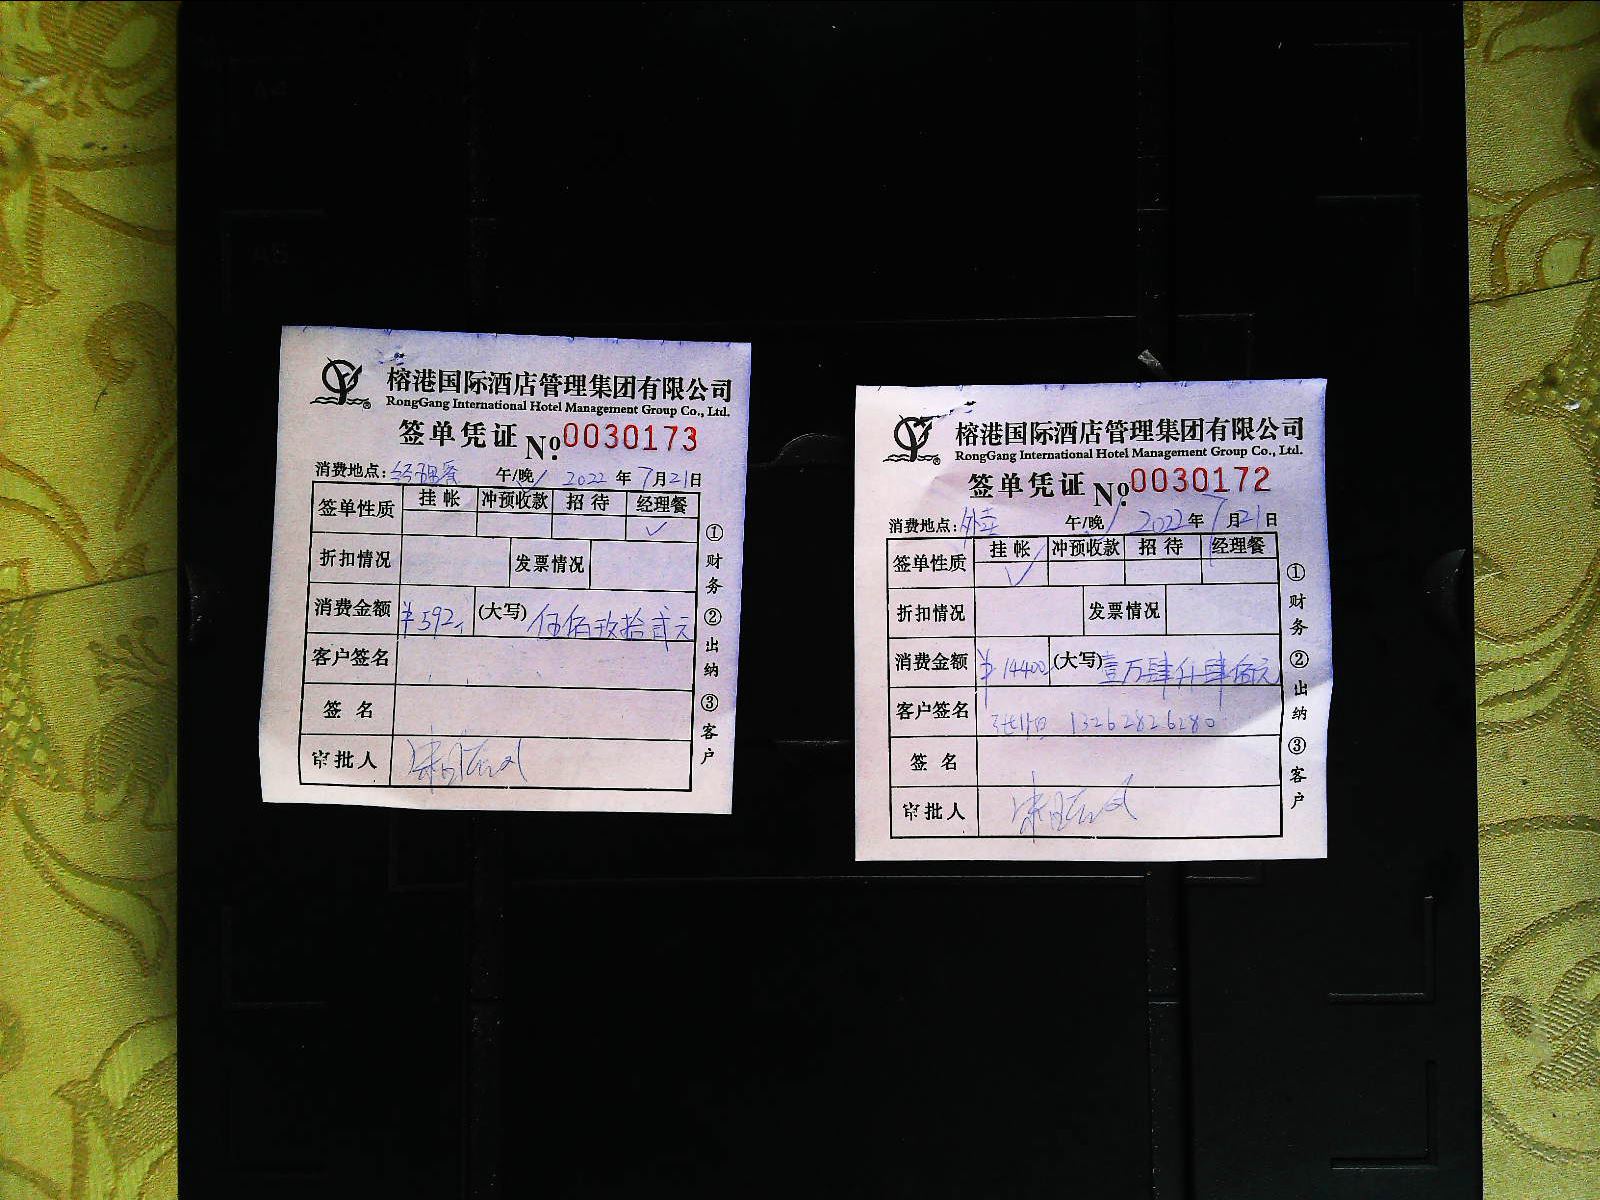 榕港国际酒店管理集团有限公司
RongGang International Hotel Management Group Co., Ltd.
签单凭证 No. 0030173
消费地点: 经理餐 午/晚 2022 年 7 月 21 日
签单性质 挂帐 冲预收款 招待 经理餐
✓
折扣情况 发票情况
消费金额 ¥592 (大写) 伍佰玖拾贰元
客户签名
签名
审批人
①财务 ②出纳 ③客户
榕港国际酒店管理集团有限公司
RongGang International Hotel Management Group Co., Ltd.
签单凭证 No. 0030172
消费地点: 外卖 午/晚 2022 年 7 月 21 日
签单性质 挂帐 冲预收款 招待 经理餐
✓
折扣情况 发票情况
消费金额 ¥14400 (大写) 壹万肆仟肆佰元
客户签名 13262826280
签名
审批人
①财务 ②出纳 ③客户